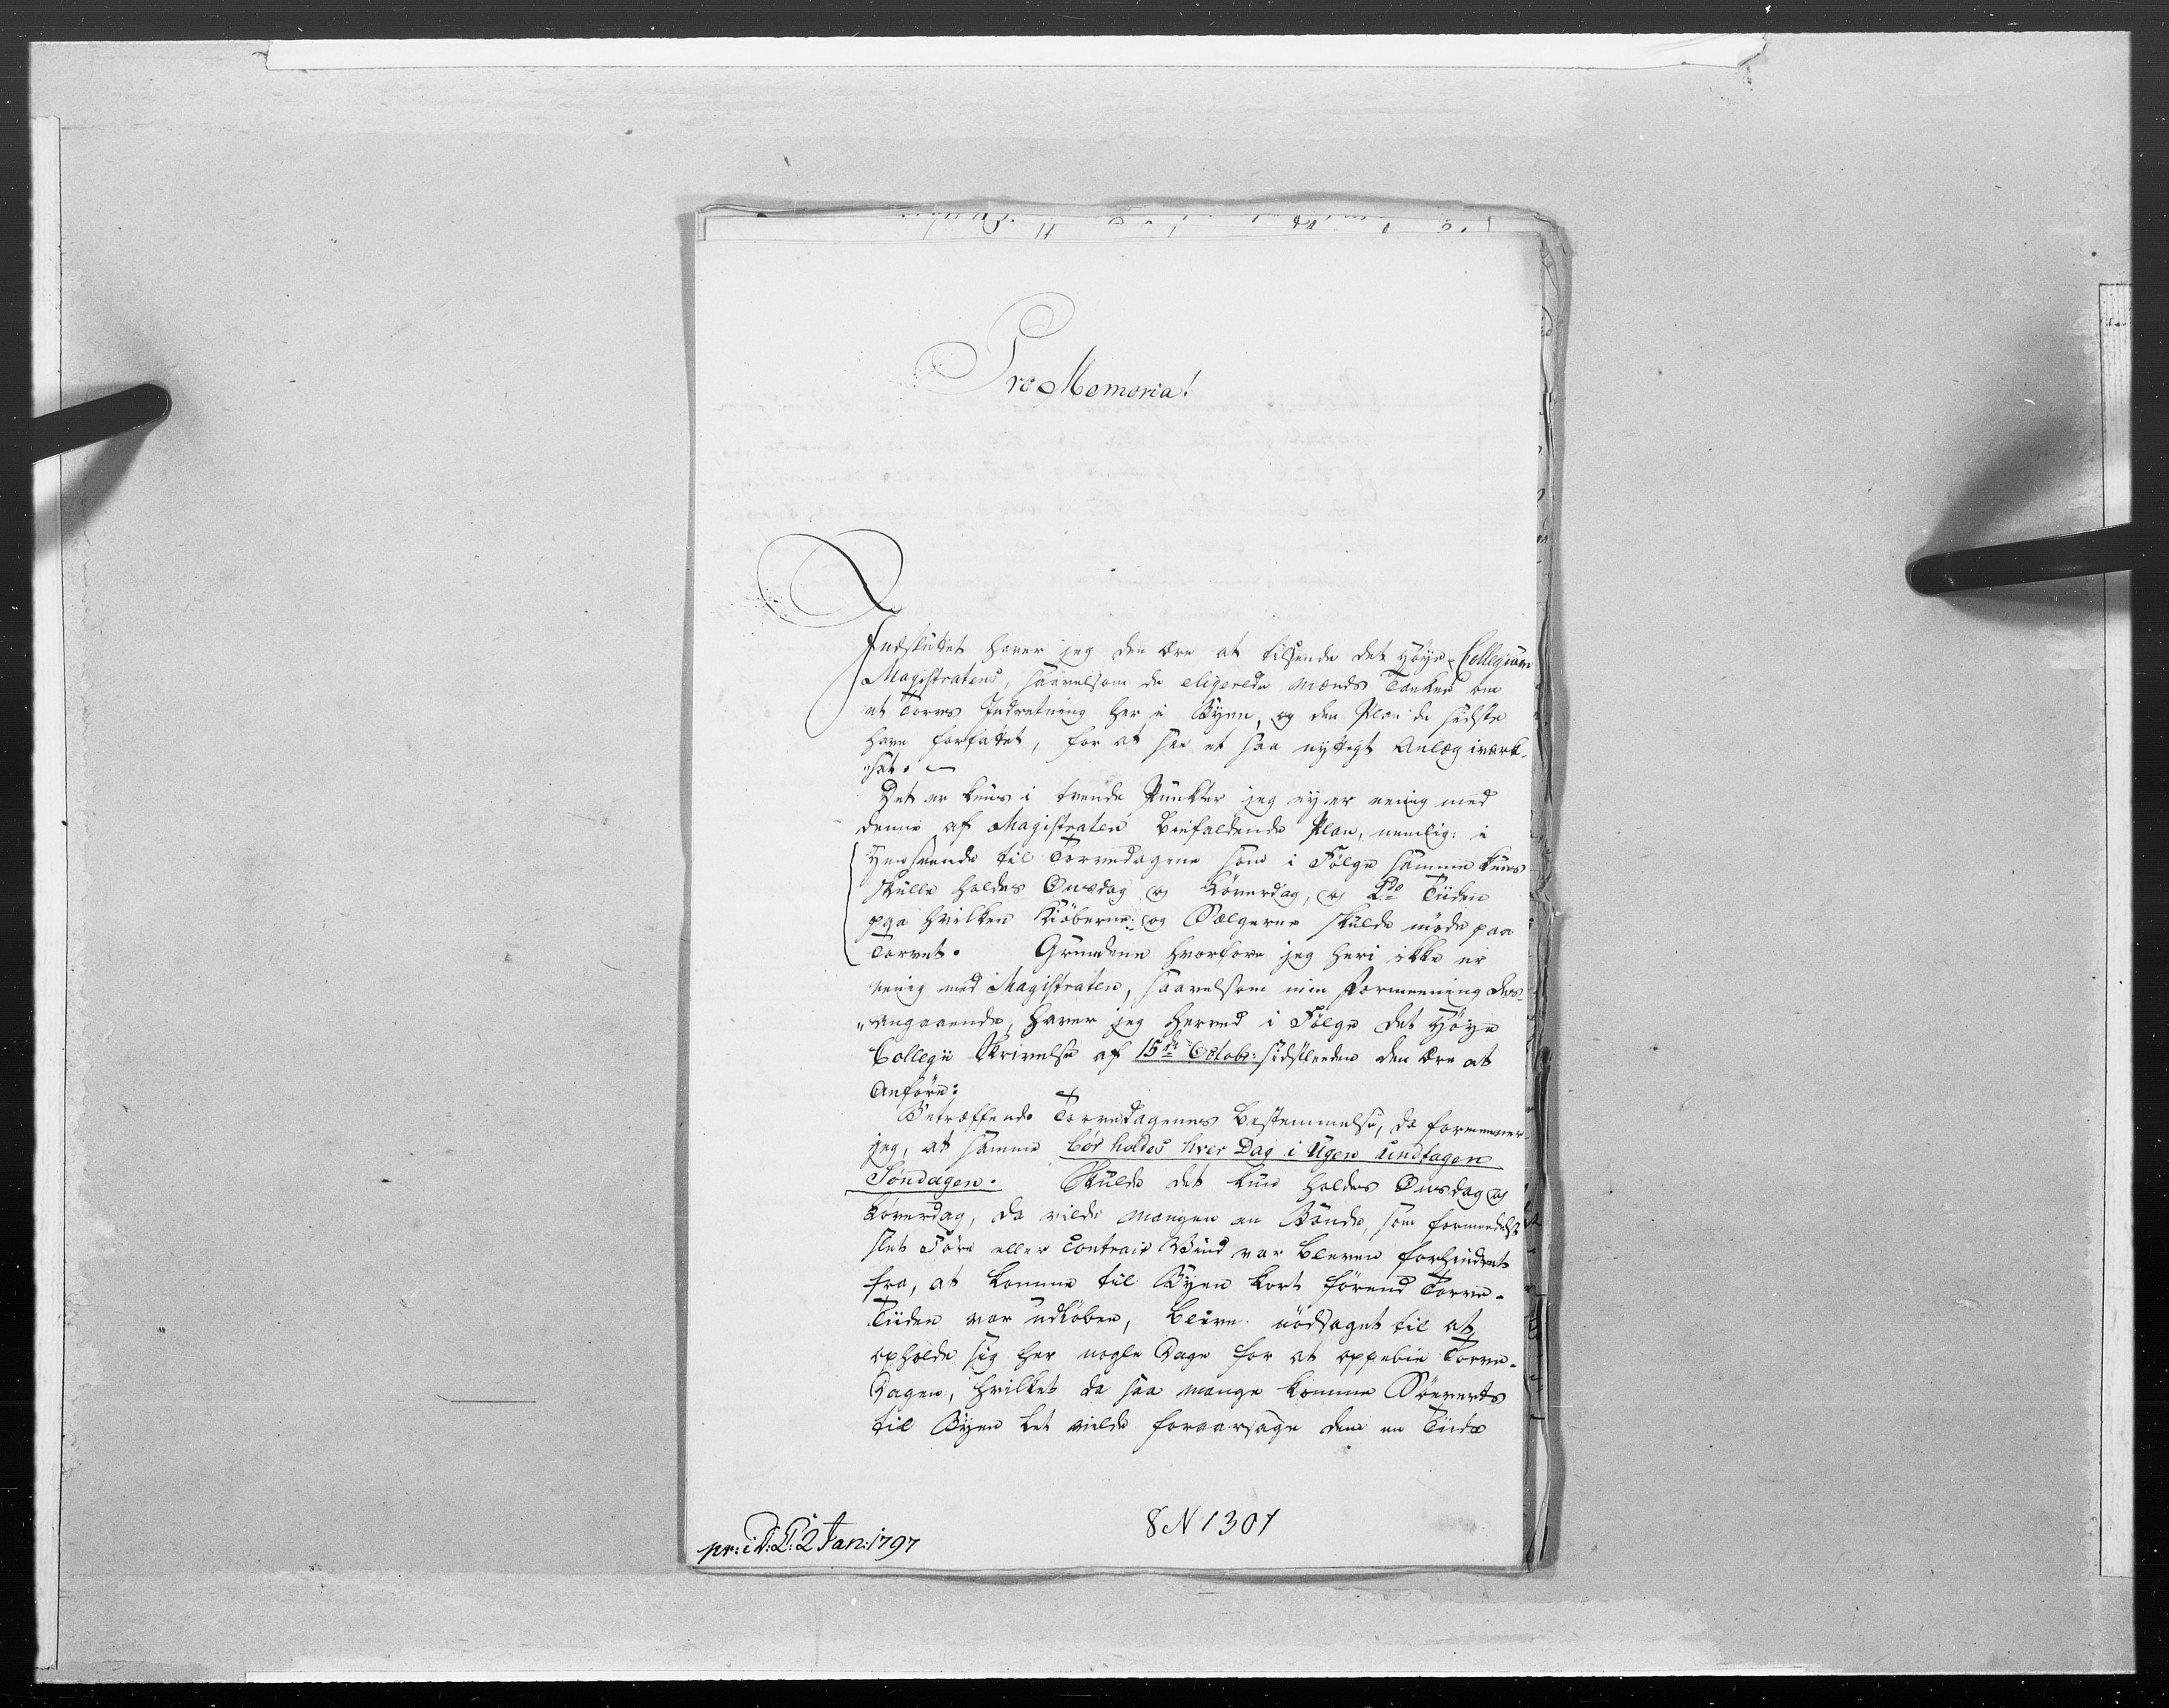 Pro Memoria!
Indsluttet haver jeg den Ære at tilsende det Høye Collegium
Magistratens, saavelsom de eligerede Mænds Tanker om
et Torvs Indretning her i Byen, og den Plan de sidste
have forfattet, for at see et saa nyttigt Anlæg iværk-
"sat.
Det er kuns i tvende Punkter jeg ey er eenig med
denne af Magistraten biefaldende Plan, nemlig: i
Henseende til Torvedagene som i Følge samme kuns
skulle holdes Onsdag og Löverdag, og 2do Tiiden
paa hvilken Kiöberne og Sælgerne skulde møde paa
Torvet. Grundene hvorfore jeg heri ikke er
eenig med Magistraten, saavelsom min Formeening des-
"angaaende, haver jeg herved i Følge det Høye
Collegii Skrivelse af 15de Octobr: sidstleeden den Ære at
Anføre:
Betræffende Torvedagenes Bestemmelse, da formeener
jeg, at samme bör holdes hver Dag i Ugen undtagen
Søndagen. Skulde det kun holdes Onsdag og
Löverdag, da vilde mangen en Bonde, som formedelst
slet Före eller Contrair Vind var bleven forhindret
fra, at komme til Byen kort förend Torve-
Tiiden var udløben, blive nödsaget til at
opholde sig her nogle Dage for at oppebie Torve-
Dagen, hvilket da saa mange komme Söeverts
til Byen let vilde foraarsage dem en Tiids
8 N 1301
pr: i D: C: 2 Jan: 1797